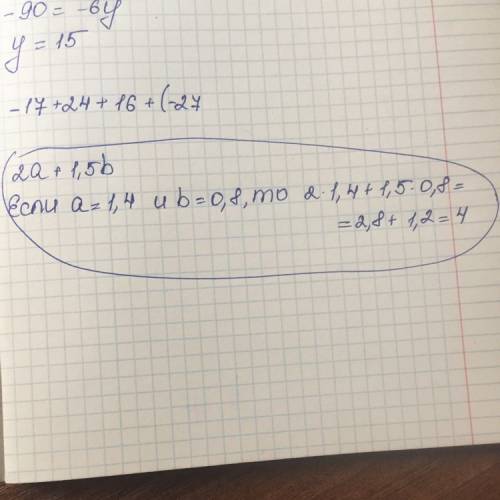 -90 = -6y
y = 15
-17+24+16+(-27
2a + 1,5b
Если a=1,4 и b=0,8, то 2·1,4+1,5·0,8=
=2,8+1,2=4